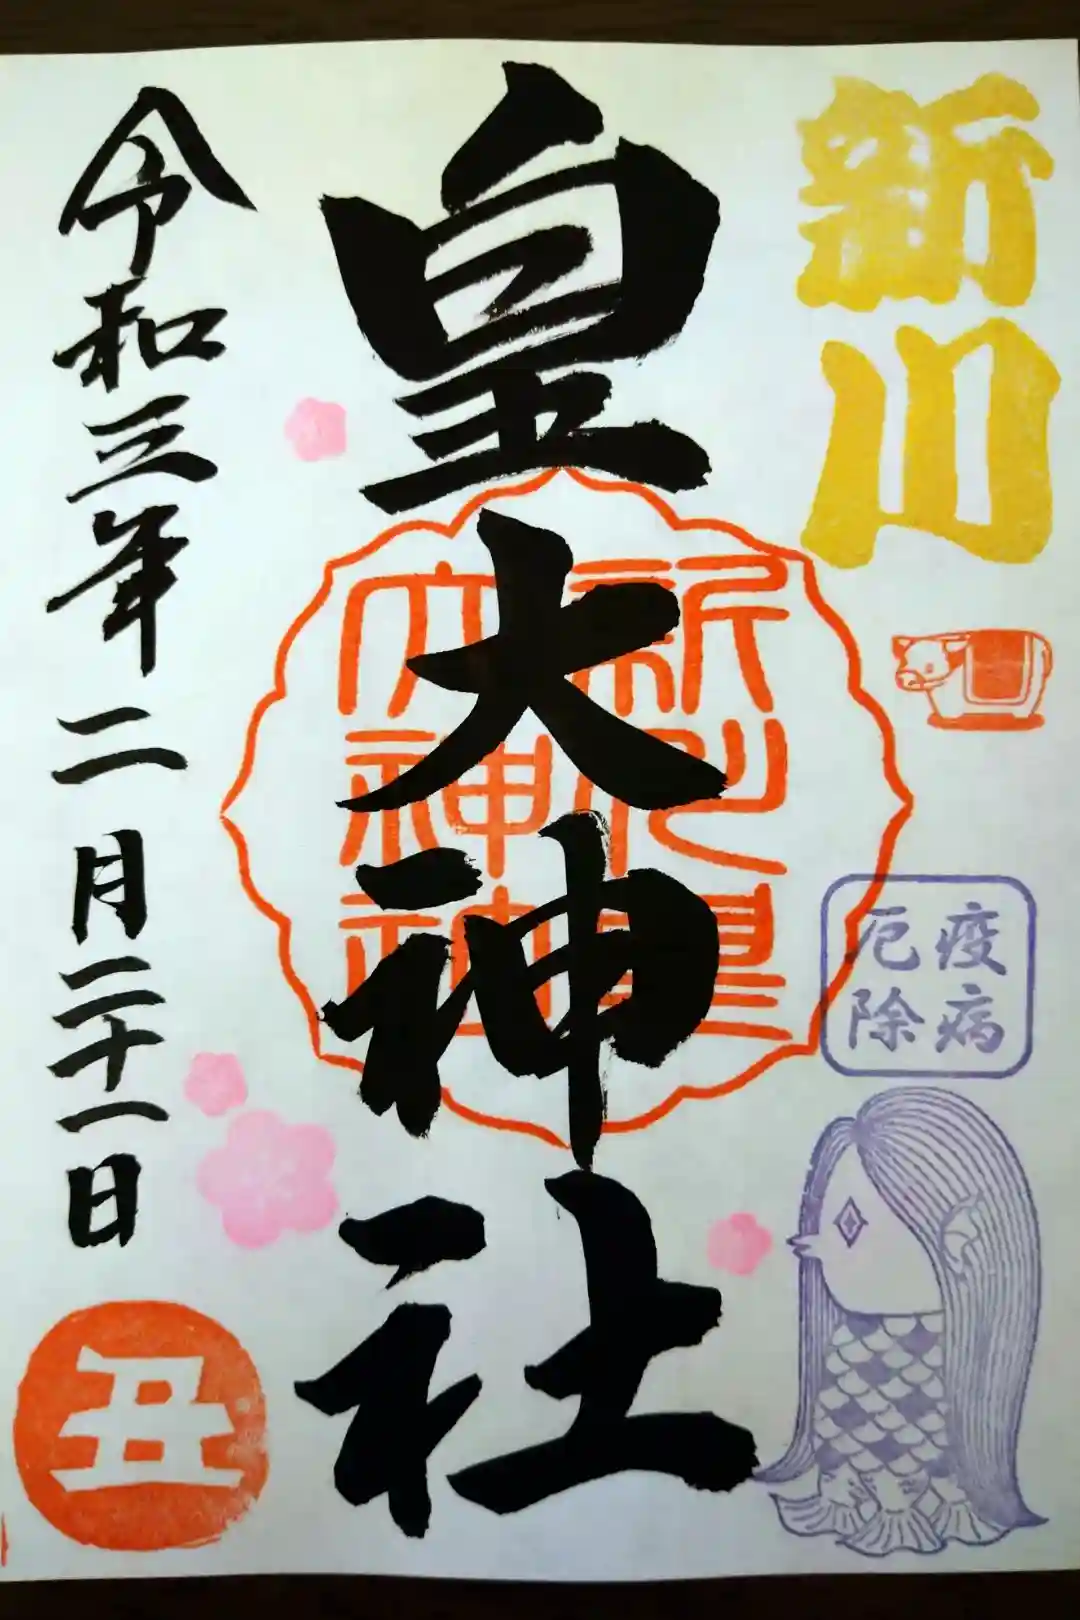 新川
疫病
厄除
皇大神社
新川皇
大神社
令和三年二月二十一日
丑